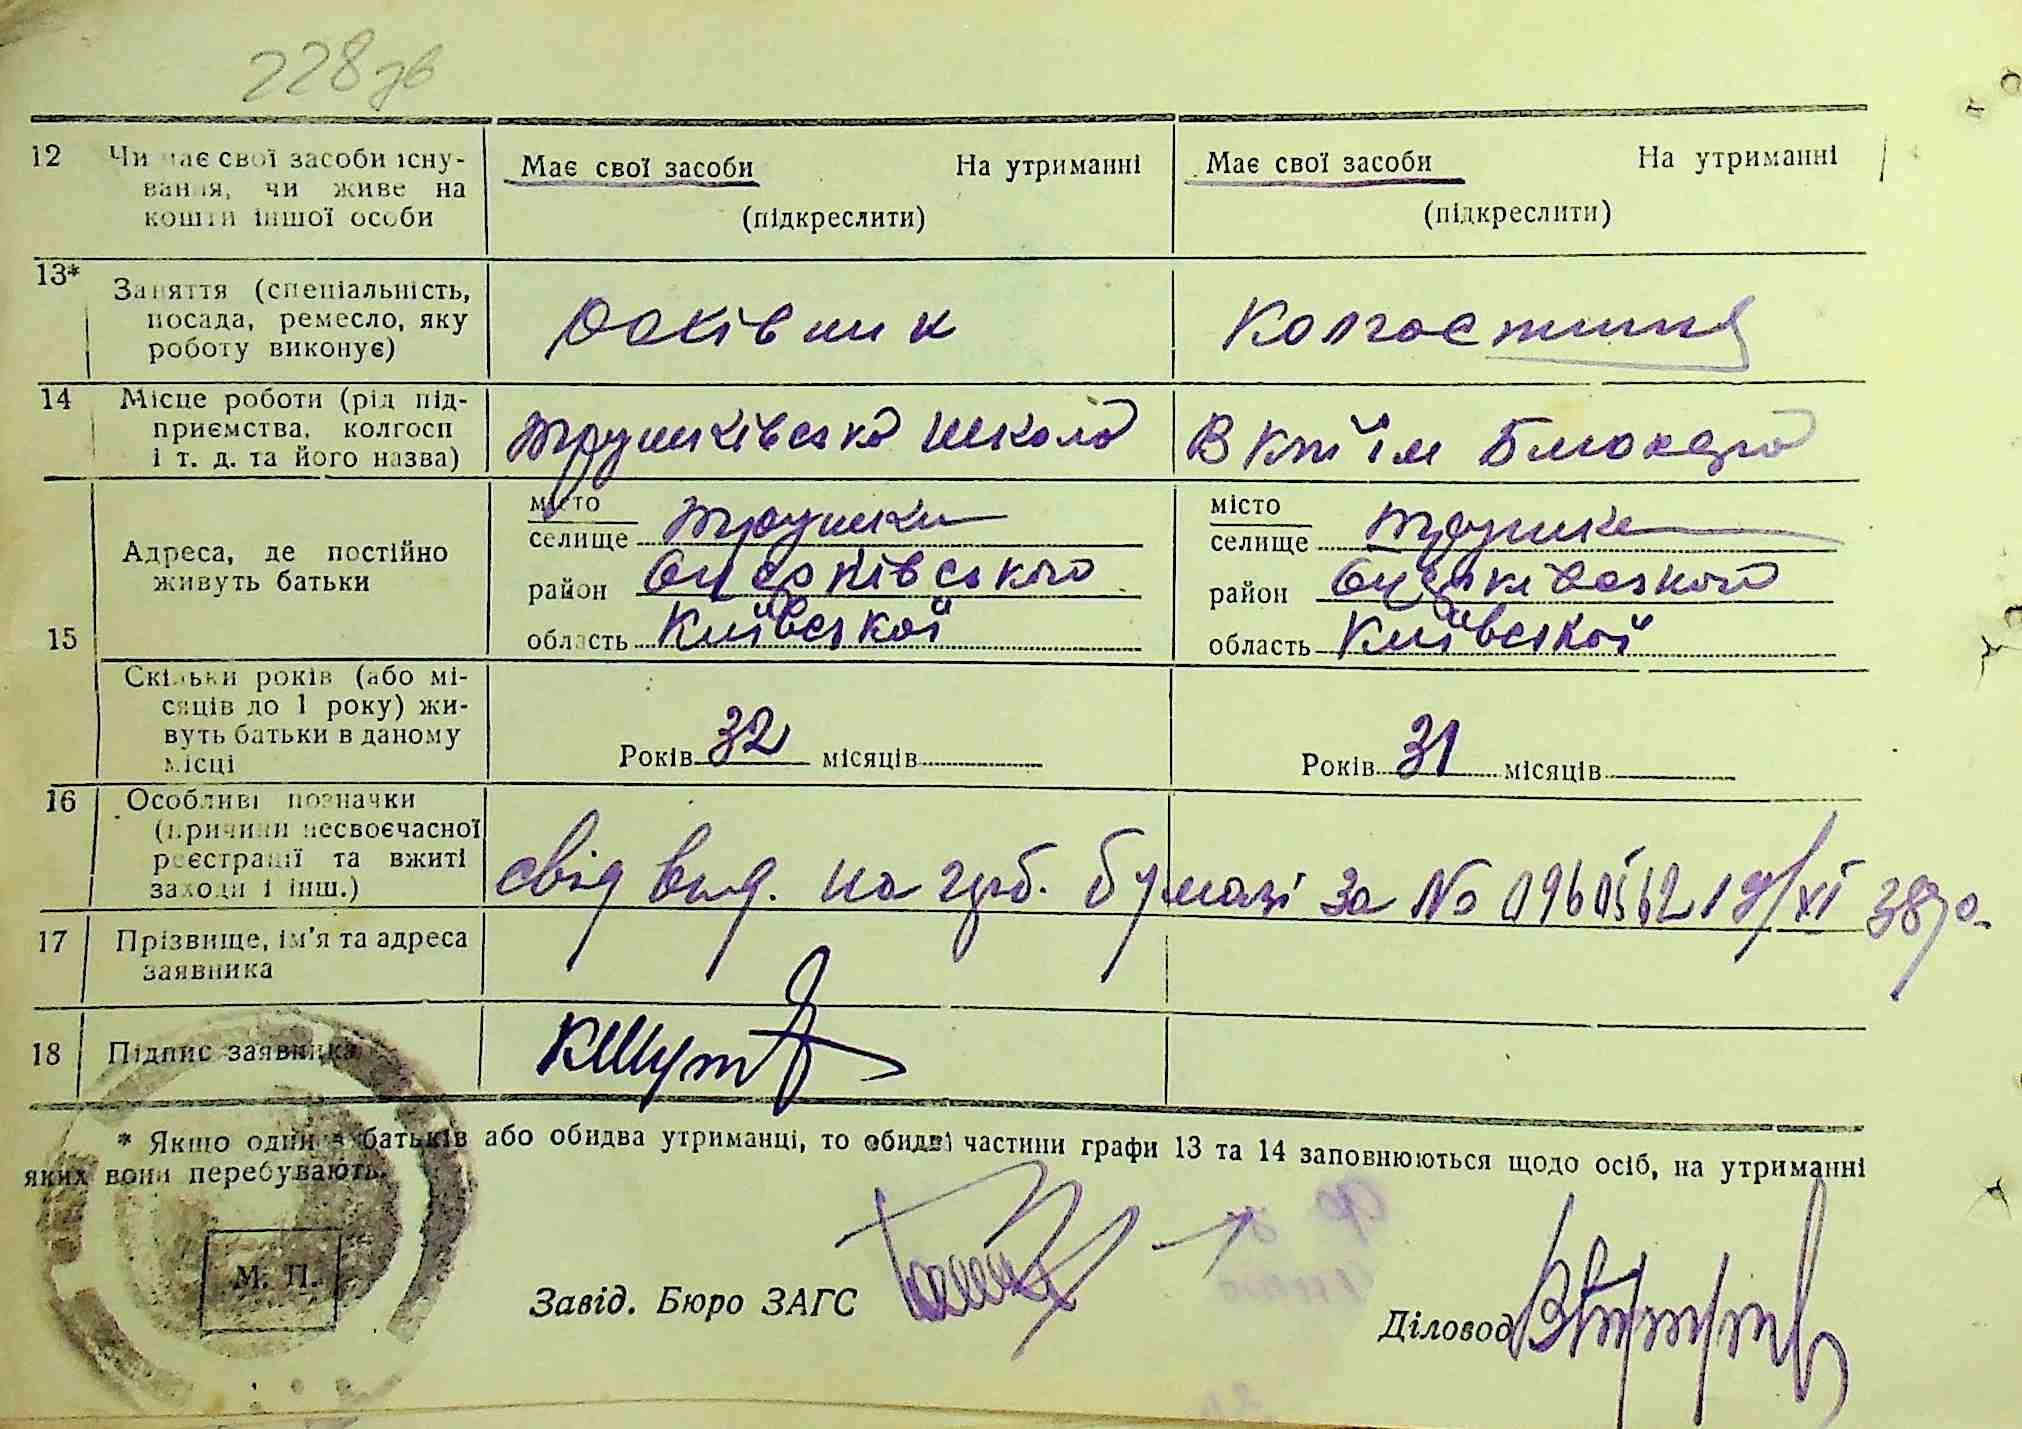 228зв
12 Чи має свої засоби існу-
вання, чи живе на
кошти іншої особи
Має свої засоби На утриманні
(підкреслити)
Має свої засоби На утриманні
(підкреслити)
13* Заняття (спеціальність,
посада, ремесло, яку
роботу виконує)
Колгоспниця
14 Місце роботи (рід під-
приємства, колгосп
і т. д. та його назва)
Трушківська школа
В к-пі ім Блюхера
15 Адреса, де постійно
живуть батьки
місто
селище Трушки
район Б/Церківського
область Київської
місто
селище Трушки
район Б/Церківського
область Київської
Скільки років (або мі-
сяців до 1 року) жи-
вуть батьки в даному
місці
Років 32 місяців
Років 31 місяців
16 Особливі позначки
(причини несвоєчасної
реєстрації та вжиті
заходи і інш.)
свід вид. на герб. бумазі за №
38 р.
17 Прізвище, ім'я та адреса
заявника
18 Підпис заявника
* Якшо один з батьків або обидва утриманці, то обидві частини графи 13 та 14 заповнюються щодо осіб, на утриманні
яких вони перебувають.
М. П.
Завід. Бюро ЗАГС
Діловод